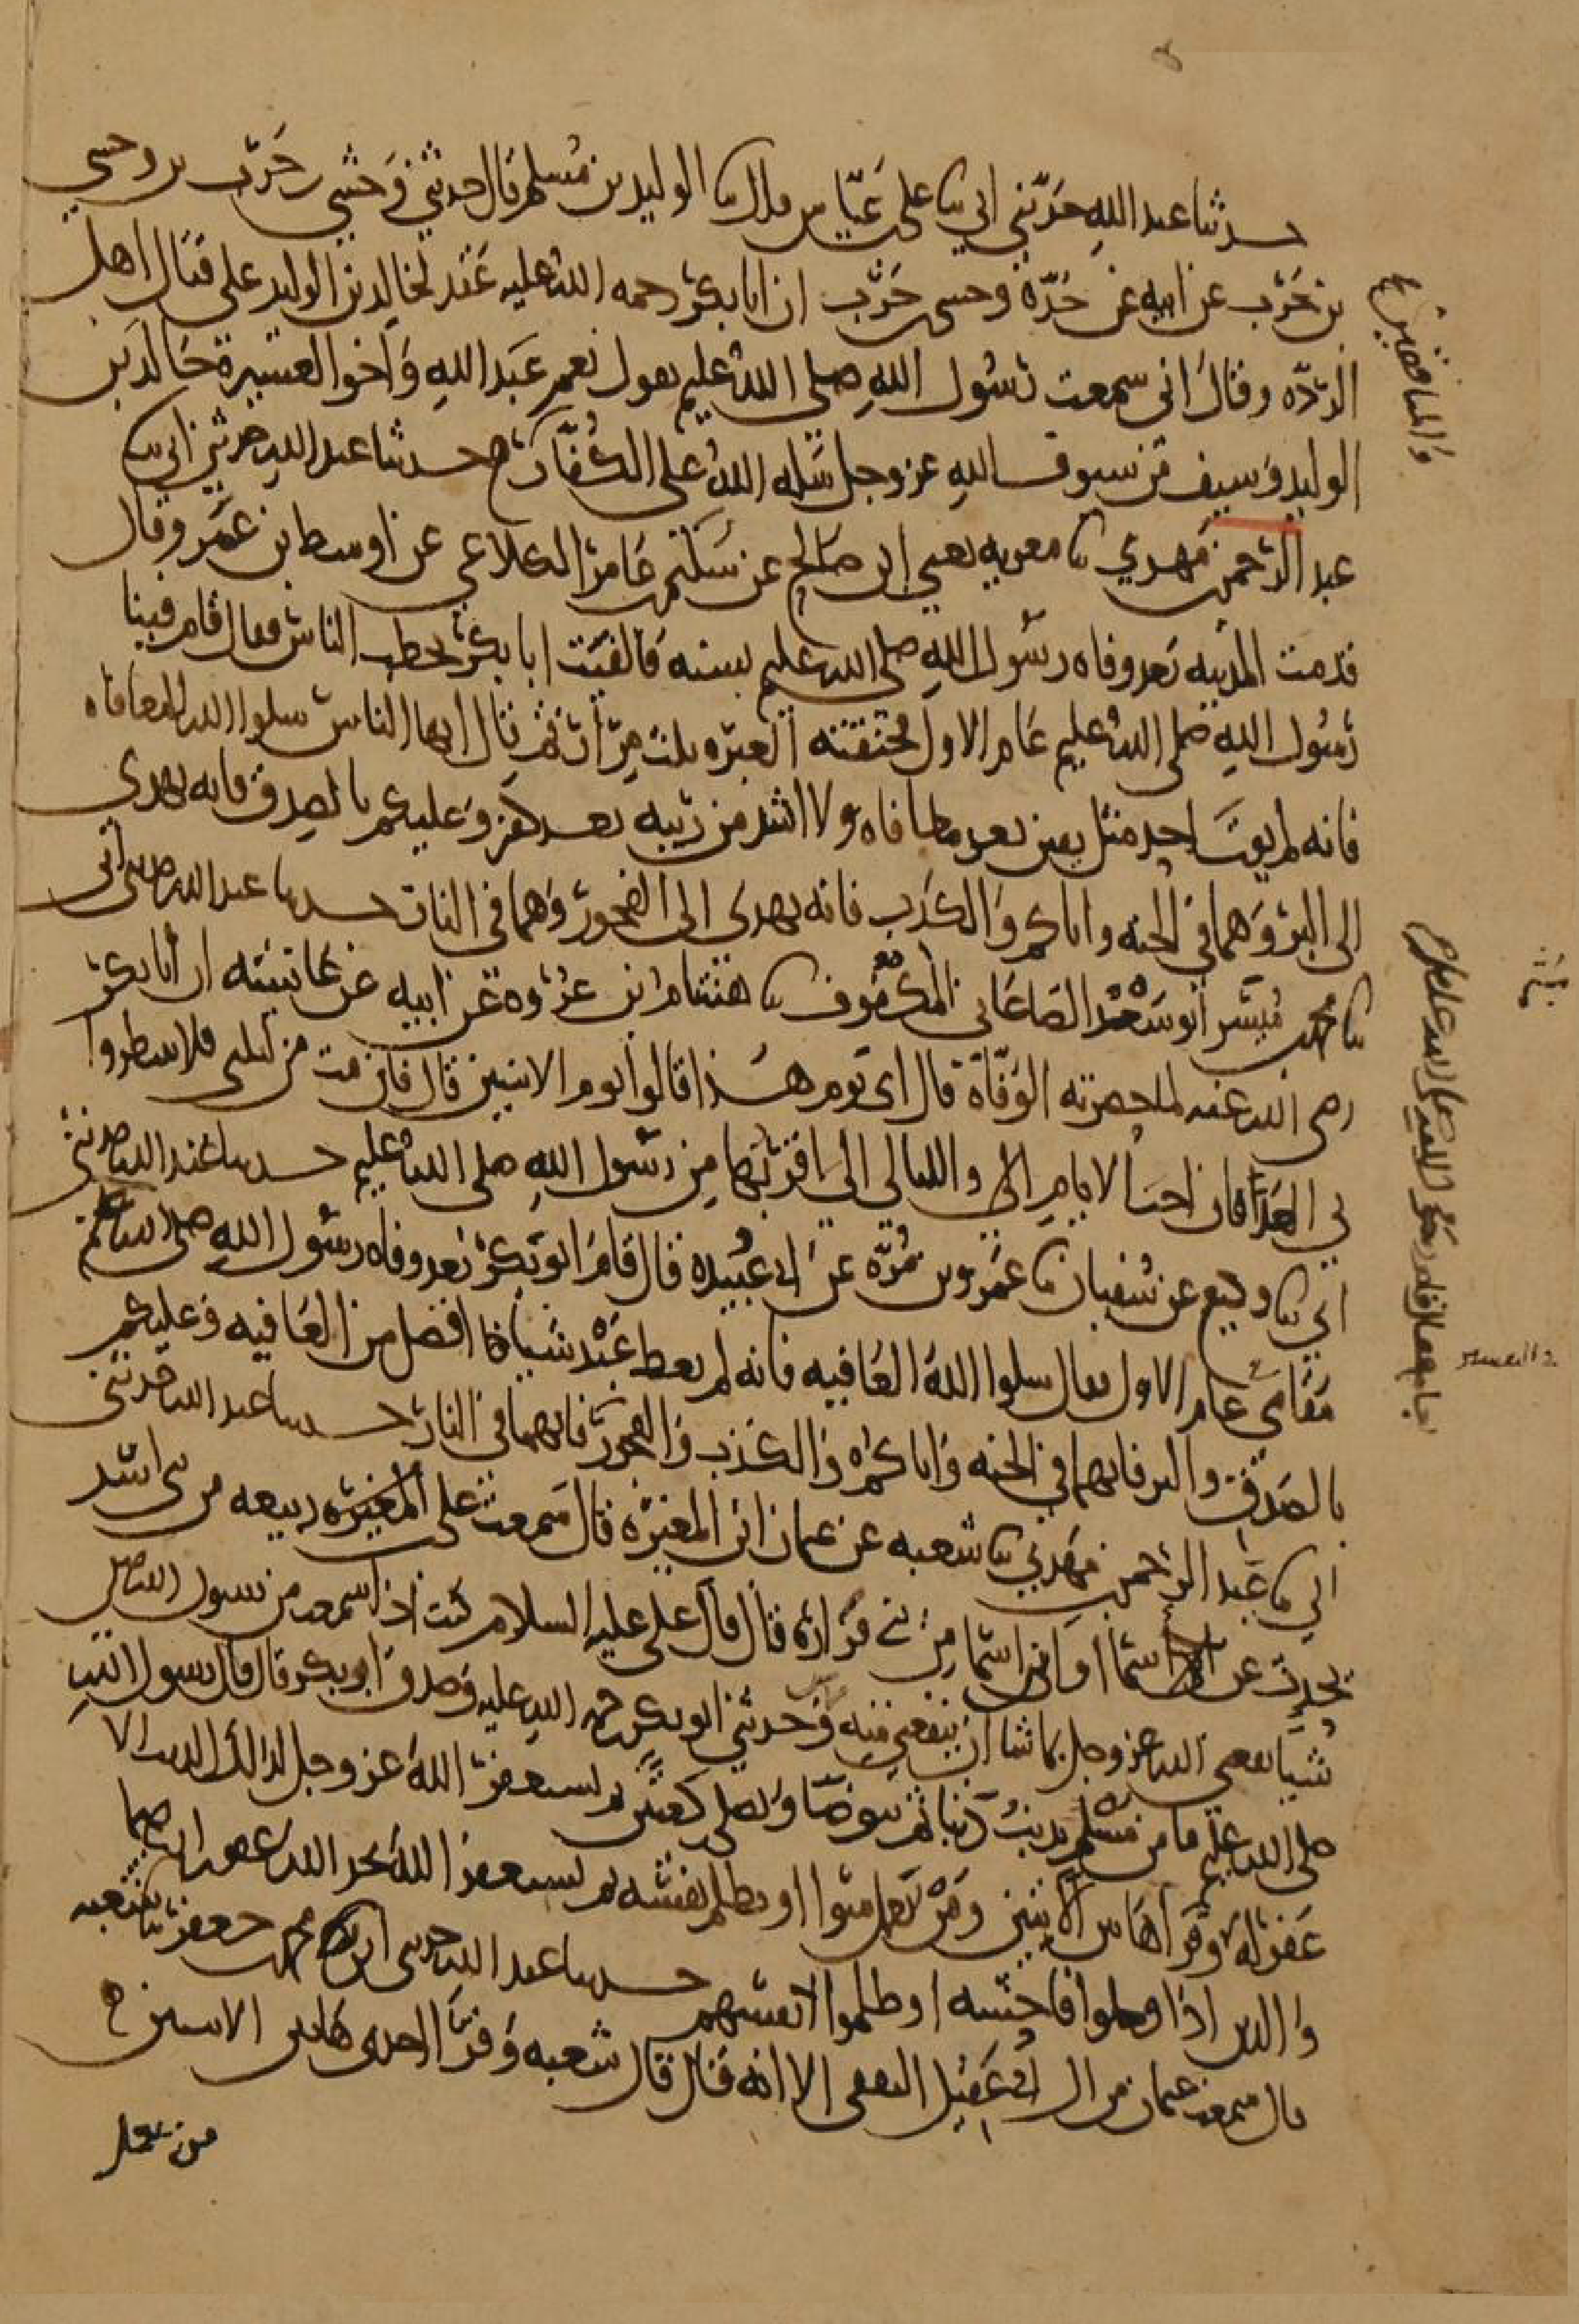 حدثنا عبد الله حدثني ابي نا علي بن عياش قال نا الوليد بن مسلم قال حدثني وحشي بن حرب بن وحشي
بن حرب عن ابيه عن جده وحشي بن حرب ان ابا بكر رحمه الله عليه عقد لخالد بن الوليد على قتال اهل
الردة وقال اني سمعت رسول الله صلى الله عليه يقول نعم عبد الله واخو العشيرة خالد بن
الوليد وسيف من سيوف الله عز وجل سله الله على الكفار حدثنا عبد الله حدثني ابي نا
عبد الرحمن بن مهدي نا معوية يعني ابن صالح عن سليم بن عامر الكلاعي عن اوسط بن عمرو قال
قدمت المدينة بعد وفاة رسول الله صلى الله عليه بسنة فالفيت ابا بكر يخطب الناس فقال قام فينا
رسول الله صلى الله عليه عام الاول فخنقته العبرة ثلث مرات ثم قال ايها الناس سلوا الله المعافاه
فانه لم يؤت احد مثل يقين بعد معافاه ولا اشد من ريبة بعد كفر وعليكم بالصدق فانه يهدي
الى البر وهما في الجنه واياكم والكذب فانه يهدي الى الفجور وهما في النار حدثنا عبد الله حدثني ابي
نا محمد بن ميسر ابو سعد الصاغاني المكفوف نا هشام بن عروة عن ابيه عن عائشة ان ابا بكر
رضي الله عنه لما حضرته الوفاة قال اي يوم هذا قالوا يوم الاثنين قال فان مت من ليلتي فلا تنتظروا
بي الغد فان احب الايام الي والليالي الي اقربها من رسول الله صلى الله عليه حدثنا عبد الله حدثني
ابي نا وكيع عن سفيان نا عمرو بن مرة عن ابي عبيدة قال قام ابو بكر بعد وفاه رسول الله صلى الله عليه
مقامي عام الاول فقال سلوا الله العافيه فانه لم يعط عبد شيا افضل من العافيه وعليكم
بالصدق والبر فانهما في الجنه واياكم والكذب والفجور فانهما في النار حدثنا عبد الله حدثني
ابي نا عبد الرحمن بن مهدي نا شعبه عن عثمان بن المغيرة قال سمعت علي بن ربيعه من بني اسد
يحدث عن اسما او ابن اسما من بني فزارة قال قال علي عليه السلام كنت اذا سمعت من رسول الله صلى الله
شيا نفعني الله عز وجل بما شا ان ينفعني منه وحدثني ابو بكر رحمه الله عليه وصدق ابو بكر قال قال رسول الله
صلى الله عليه ما من مسلم يذنب ذنبا ثم يتوضا ويصلي ركعتين ثم يستغفر الله عز وجل لذلك الذنب الا
غفر له وقرا هاتين الايتين ومن يعمل سوا او يظلم نفسه ثم يستغفر الله يجد الله غفورا رحيما
والذين اذا فعلوا فاحشه او ظلموا انفسهم حدثنا عبد الله حدثني ابي نا محمد بن جعفر نا شعبه
قال سمعت عثمان من ال ابي عقيل الثقفي الا انه قال قال شعبه وقرا احدى هاتين الايتين
من يعمل
والمنافقين